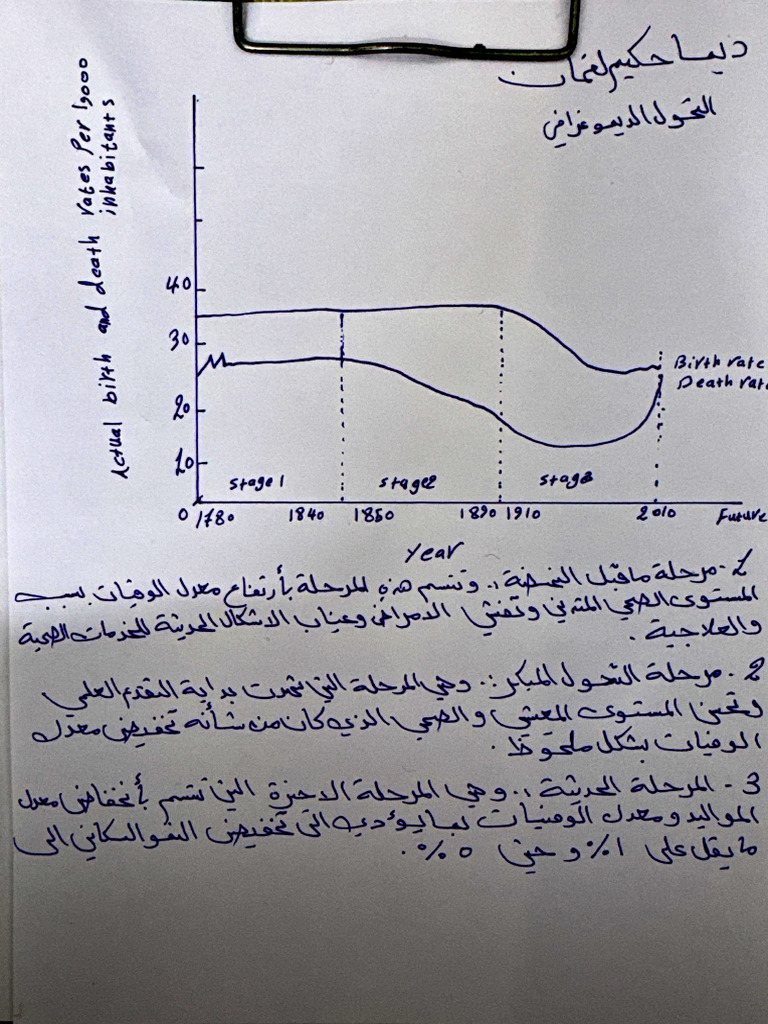 ديما حكيم لغمان
التحول الديموغرافي
Actual birth and death rates Per 1,000
inhabitants
40
30
20
10
Birth rate
Death rat
stage 1 stage2 stage3
0 1780 1840 1850 1890 1910 2010 Future
Year
1- مرحلة ماقبل النهضة :. وتتسم هذه المرحلة بأرتفاع معدل الوفيات بسبب
المستوى الصحي المتدني وتفشي الامراض وغياب الاشكال الحديثة للخدمات الصحية
والعلاجية .
2. مرحلة التحول المبكر :. وهي المرحلة التي شهدت بداية التقدم العلمي
وتحسن المستوى المعيشي والصحي الذي كان من شأنه تخفيض معدل
الوفيات بشكل ملحوظ .
3 - المرحلة الحديثة :. وهي المرحلة الاخيرة التي تتسم بأنخفاض معدل
المواليد ومعدل الوفيات بما يؤدي الى تخفيض النمو السكاني الى
ما يقل على ١% وحتى ٥ %.